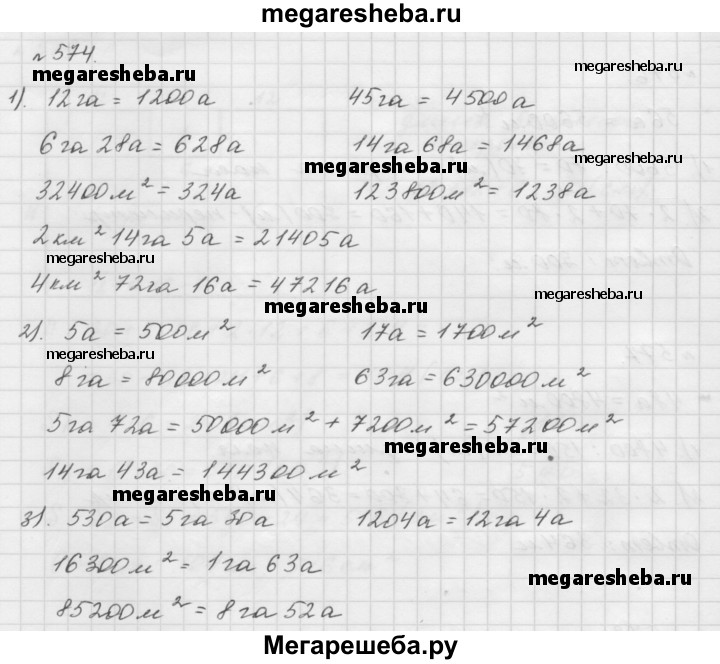 megaresheba.ru
№ 574.
megaresheba.ru
megaresheba.ru
1). 12га = 1200а 45га = 4500а
6га 28а = 628а 14га 68а = 1468а
megaresheba.ru
megaresheba.ru
32400м² = 324а 123800м² = 1238а
2км² 14га 5а = 21405а
megaresheba.ru
4км² 72га 16а = 47216а
megaresheba.ru
megaresheba.ru
2). 5а = 500м² 17а = 1700м²
megaresheba.ru
8га = 80000м² 63га = 630000м²
5га 72а = 50000м² + 7200м² = 57200м²
megaresheba.ru
14га 43а = 144300м²
megaresheba.ru
3). 530а = 5га 30а 1204а = 12га 4а
16300м² = 1га 63а
megaresheba.ru
85200м² = 8га 52а
Мегарешеба.ру